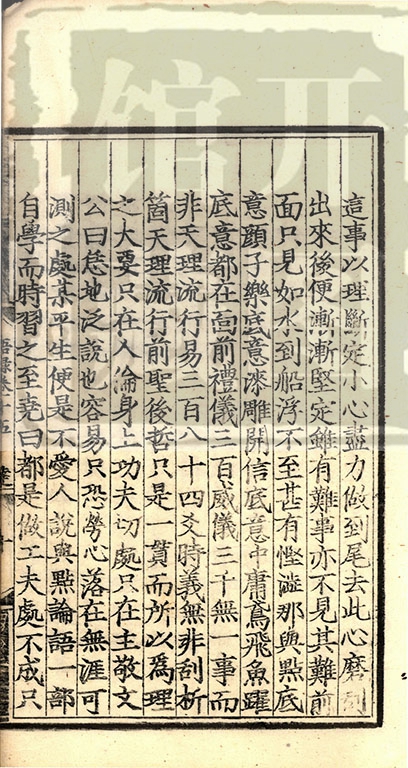 這事以理斷定小心盡力做到尾去此心磨刮
出來後便漸漸堅定雖有難事亦不見其難前
面只見如水到船浮不至甚有慳澁那與點底
意顔子樂底意漆雕開信底意中庸鳶飛魚躍
底意都在面前禮儀三百威儀三千無一事而
非天理流行易三百八十四爻時義無非剖析
箇天理流行前聖後哲只是一貫而所以為理
之大要只在人倫身上功夫切處只在主敬文
公曰恁地泛說也容易只恐勞心落在無涯可
測之處某平生便是不愛人說與點論語一部
自學而時習之至堯曰都是做工夫處不成只
語錄卷